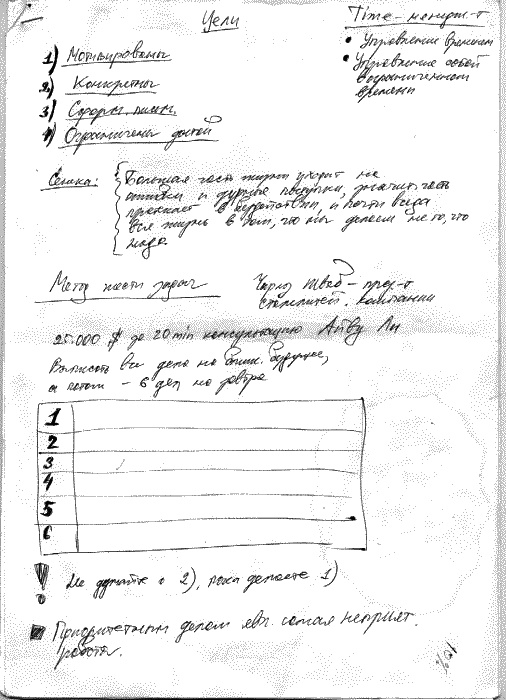 Цели
Time-менеджм-т
• Управление временем
• Управление собой
в ограниченном
времени
1) Мотивированы
2) Конкретны
3) Сформ. письм.
4) Ограничены датой
Сенека:
Большая часть жизни уходит на
ошибки и дурные поступки, значит. часть
протекает в бездействии, и почти всегда
вся жизнь в том, что мы делаем не то, что
надо.
Метод шести задач
Чарльз Шваб - през-т
сталелитей. компании
25.000 $ за 20 min консультацию Айву Ли
Выписать все дела на ближ. будущее,
а потом - 6 дел на завтра
1
2
3
4
5
6
! Не думайте о 2), пока делаете 1)
Приоритетным делом явл. самая неприят.
работа.